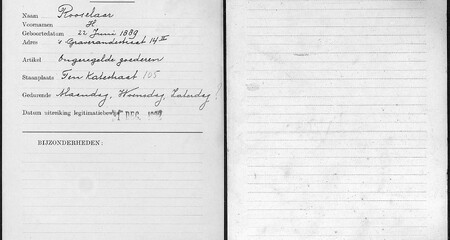 Naam Rooselaar
Voornamen H
Geboortedatum 22 Juni 1889
Adres 's Gravesandestraat 14 II
Artikel Ongeregelde goederen
Staanplaats Ten Katestraat 105
Gedurende Maandag, Woensdag, Zaterdag
Datum uitreiking legitimatiebewijs DEC.
BIJZONDERHEDEN: